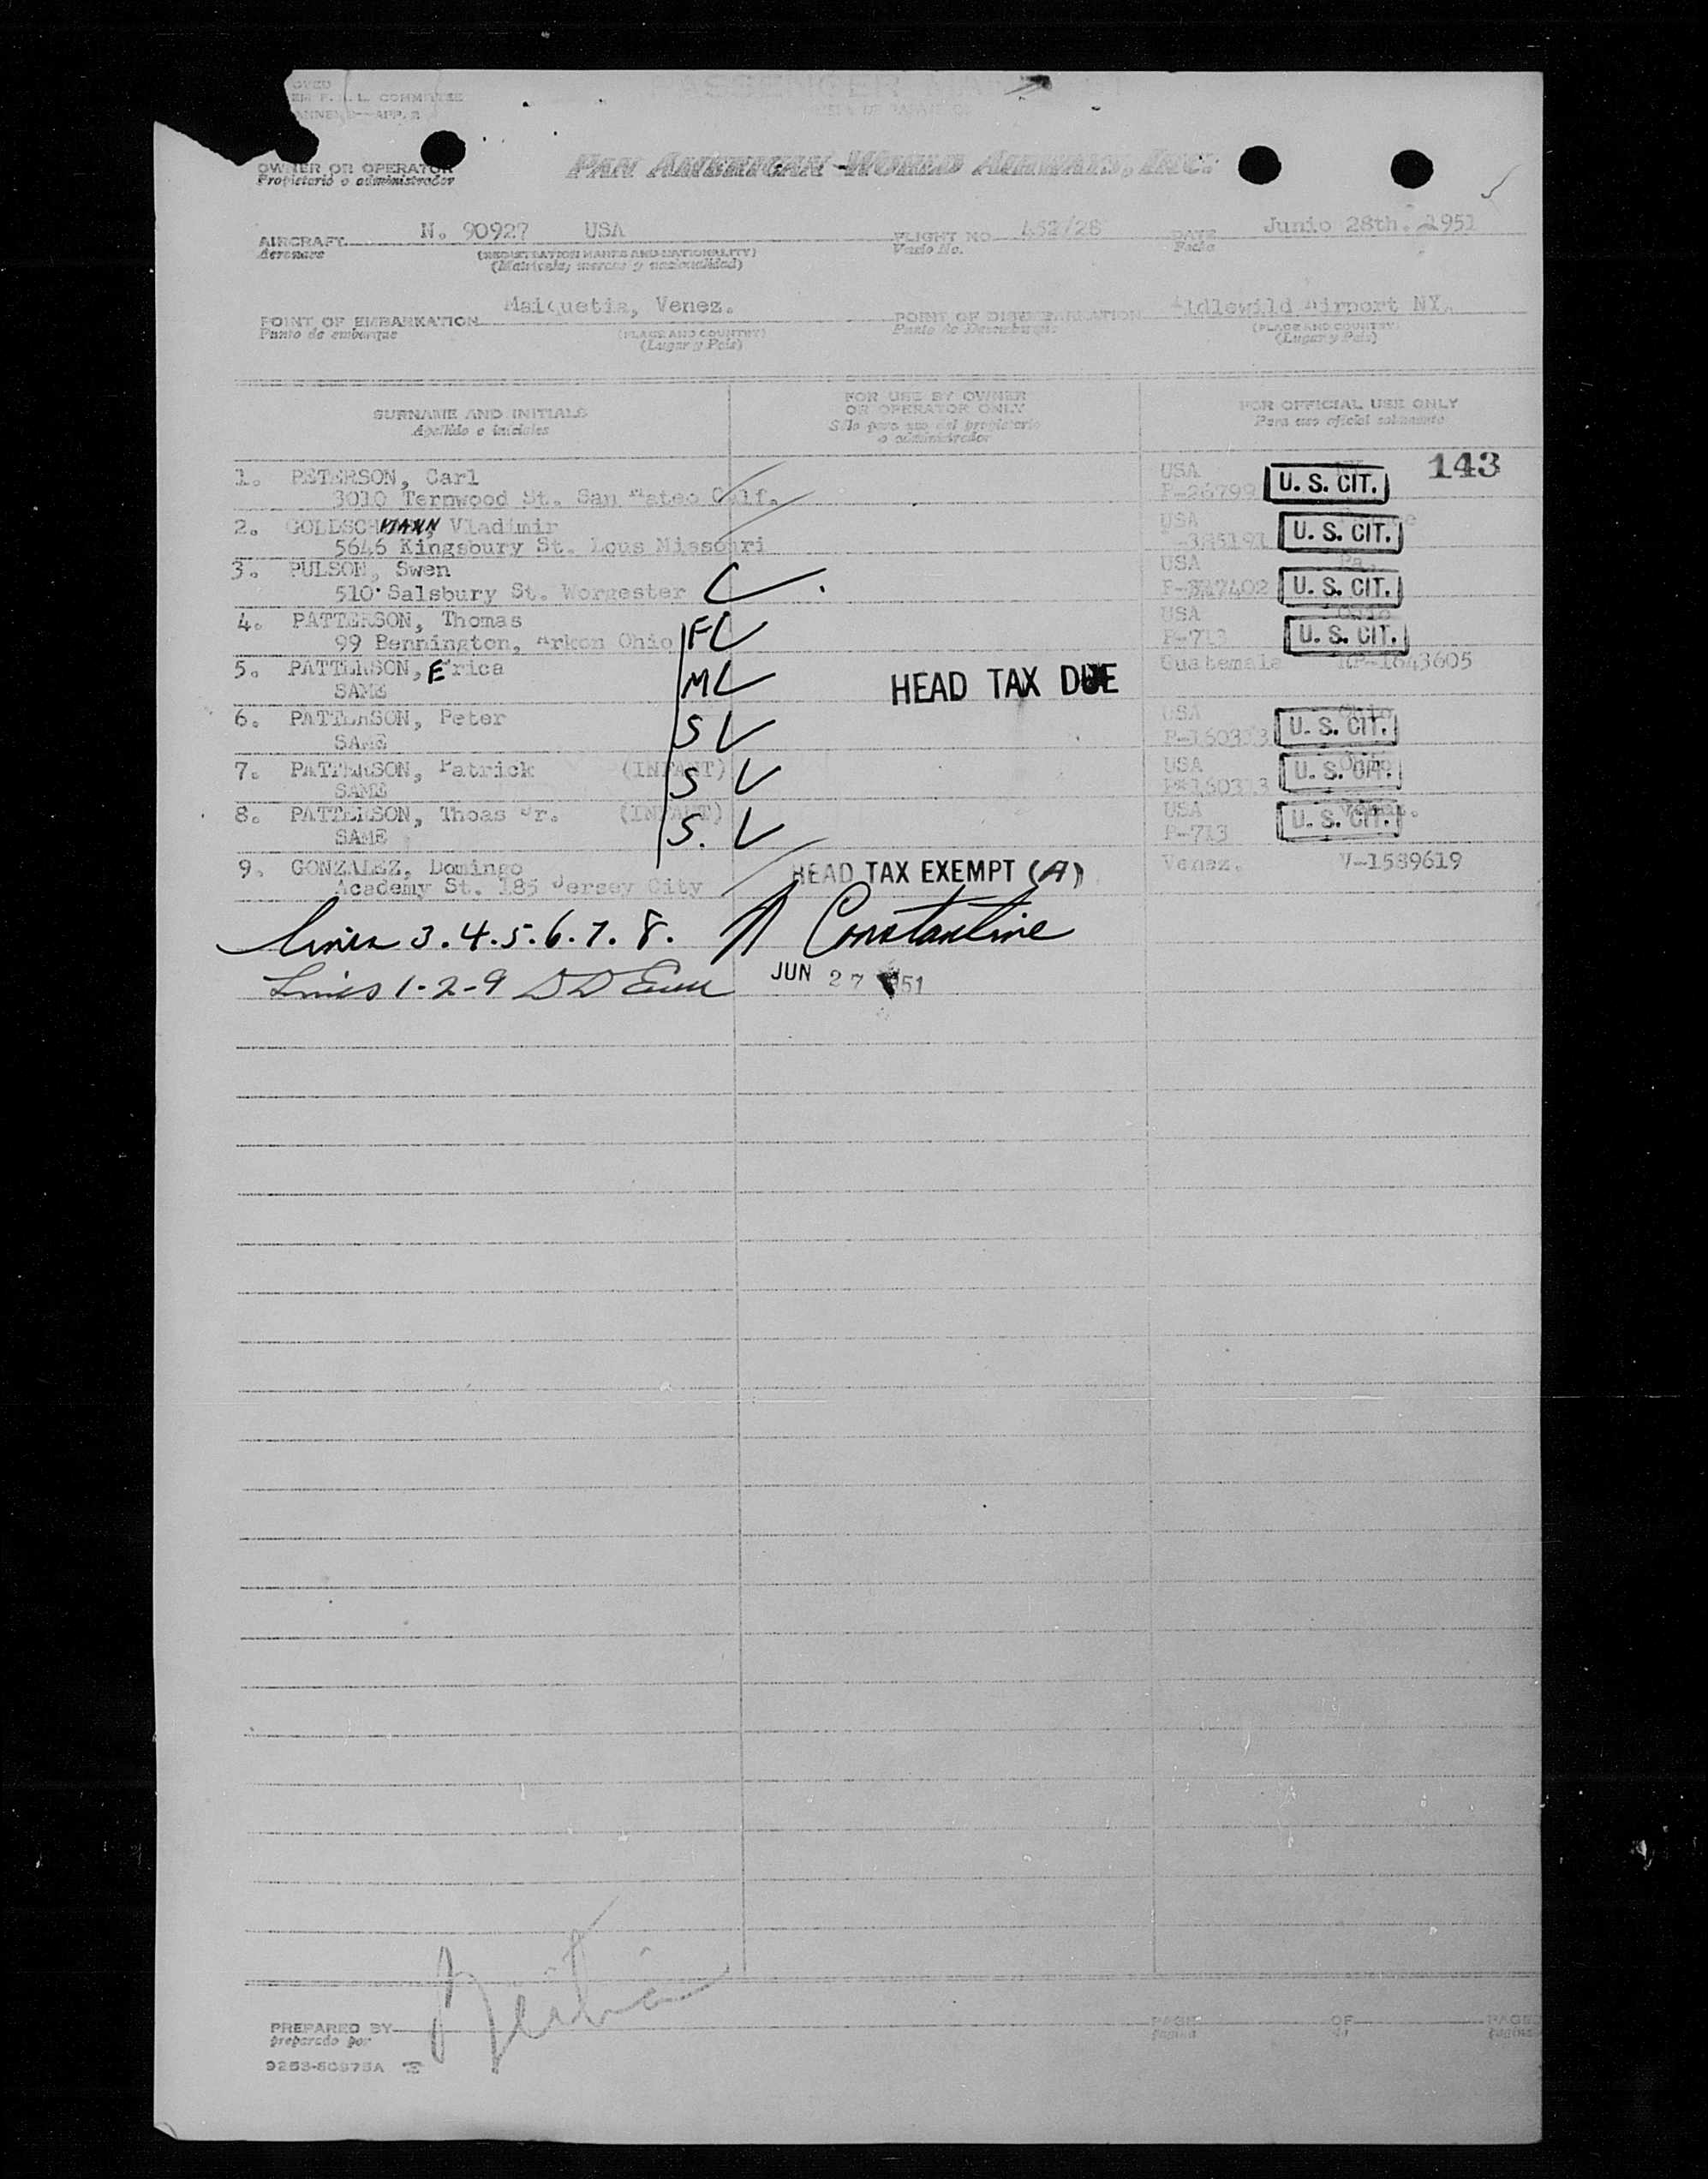 OVED
F. A. L. COMMITTEE
ANNEX 9—APP. 2
PASSENGER
OWNER OR OPERATOR
Propietario o administrador
PAN AMERICAN WORLD AIRWAYS, INC.
AIRCRAFT N. 90927 USA FLIGHT NO. 452/28 DATE Junio 28th. 1951
Aeronave (REGISTRATION MARKS AND NATIONALITY) Vuelo No. Fecha
(Matricula, marcas y nacionalidad)
POINT OF EMBARKATION Maiquetia, Venez. POINT OF DISEMBARKATION Idlewild Airport NY.
Punto de embarque (PLACE AND COUNTRY) Punto de Desembarque (PLACE AND COUNTRY)
(Lugar y País) (Lugar y País)
SURNAME AND INITIALS FOR USE BY OWNER OR OPERATOR ONLY FOR OFFICIAL USE ONLY
Apellido e iniciales Sólo para uso del propietario o administrador Para uso oficial solamente
1. PETERSON, Carl USA NY 143
3010 Ternwood St. San Mateo Calf. P-26799 U. S. CIT.
2. GOLDSCHMANN, Vladimir USA
5646 Kingsbury St. Lous Missouri -385191 U. S. CIT.
3. PULSON, Swen USA Pa.
510 Salsbury St. Worgester U. S. CIT.
4. PATTERSON, Thomas F USA Ohio
99 Bennington, Arkon Ohio P-713 U. S. CIT.
5. PATTERSON, Erica M HEAD TAX DUE Guatemala RP-1643605
SAME
6. PATTERSON, Peter S USA Ohio
SAME P-160313 U. S. CIT.
7. PATTERSON, Patrick (INFANT) S USA Ohio
SAME P-160313 U. S. CIT.
8. PATTERSON, Thoas Jr. (INFANT) S. USA Venez.
SAME P-713 U. S. CIT.
9. GONZALEZ, Domingo HEAD TAX EXEMPT (A) Venez. V-1589619
Academy St. 185 Jersey City
Lines 3.4.5.6.7.8. Constantine
Lines 1-2-9 JUN 27 1951
PREPARED BY PAGE OF PAGES
preparado por página de páginas